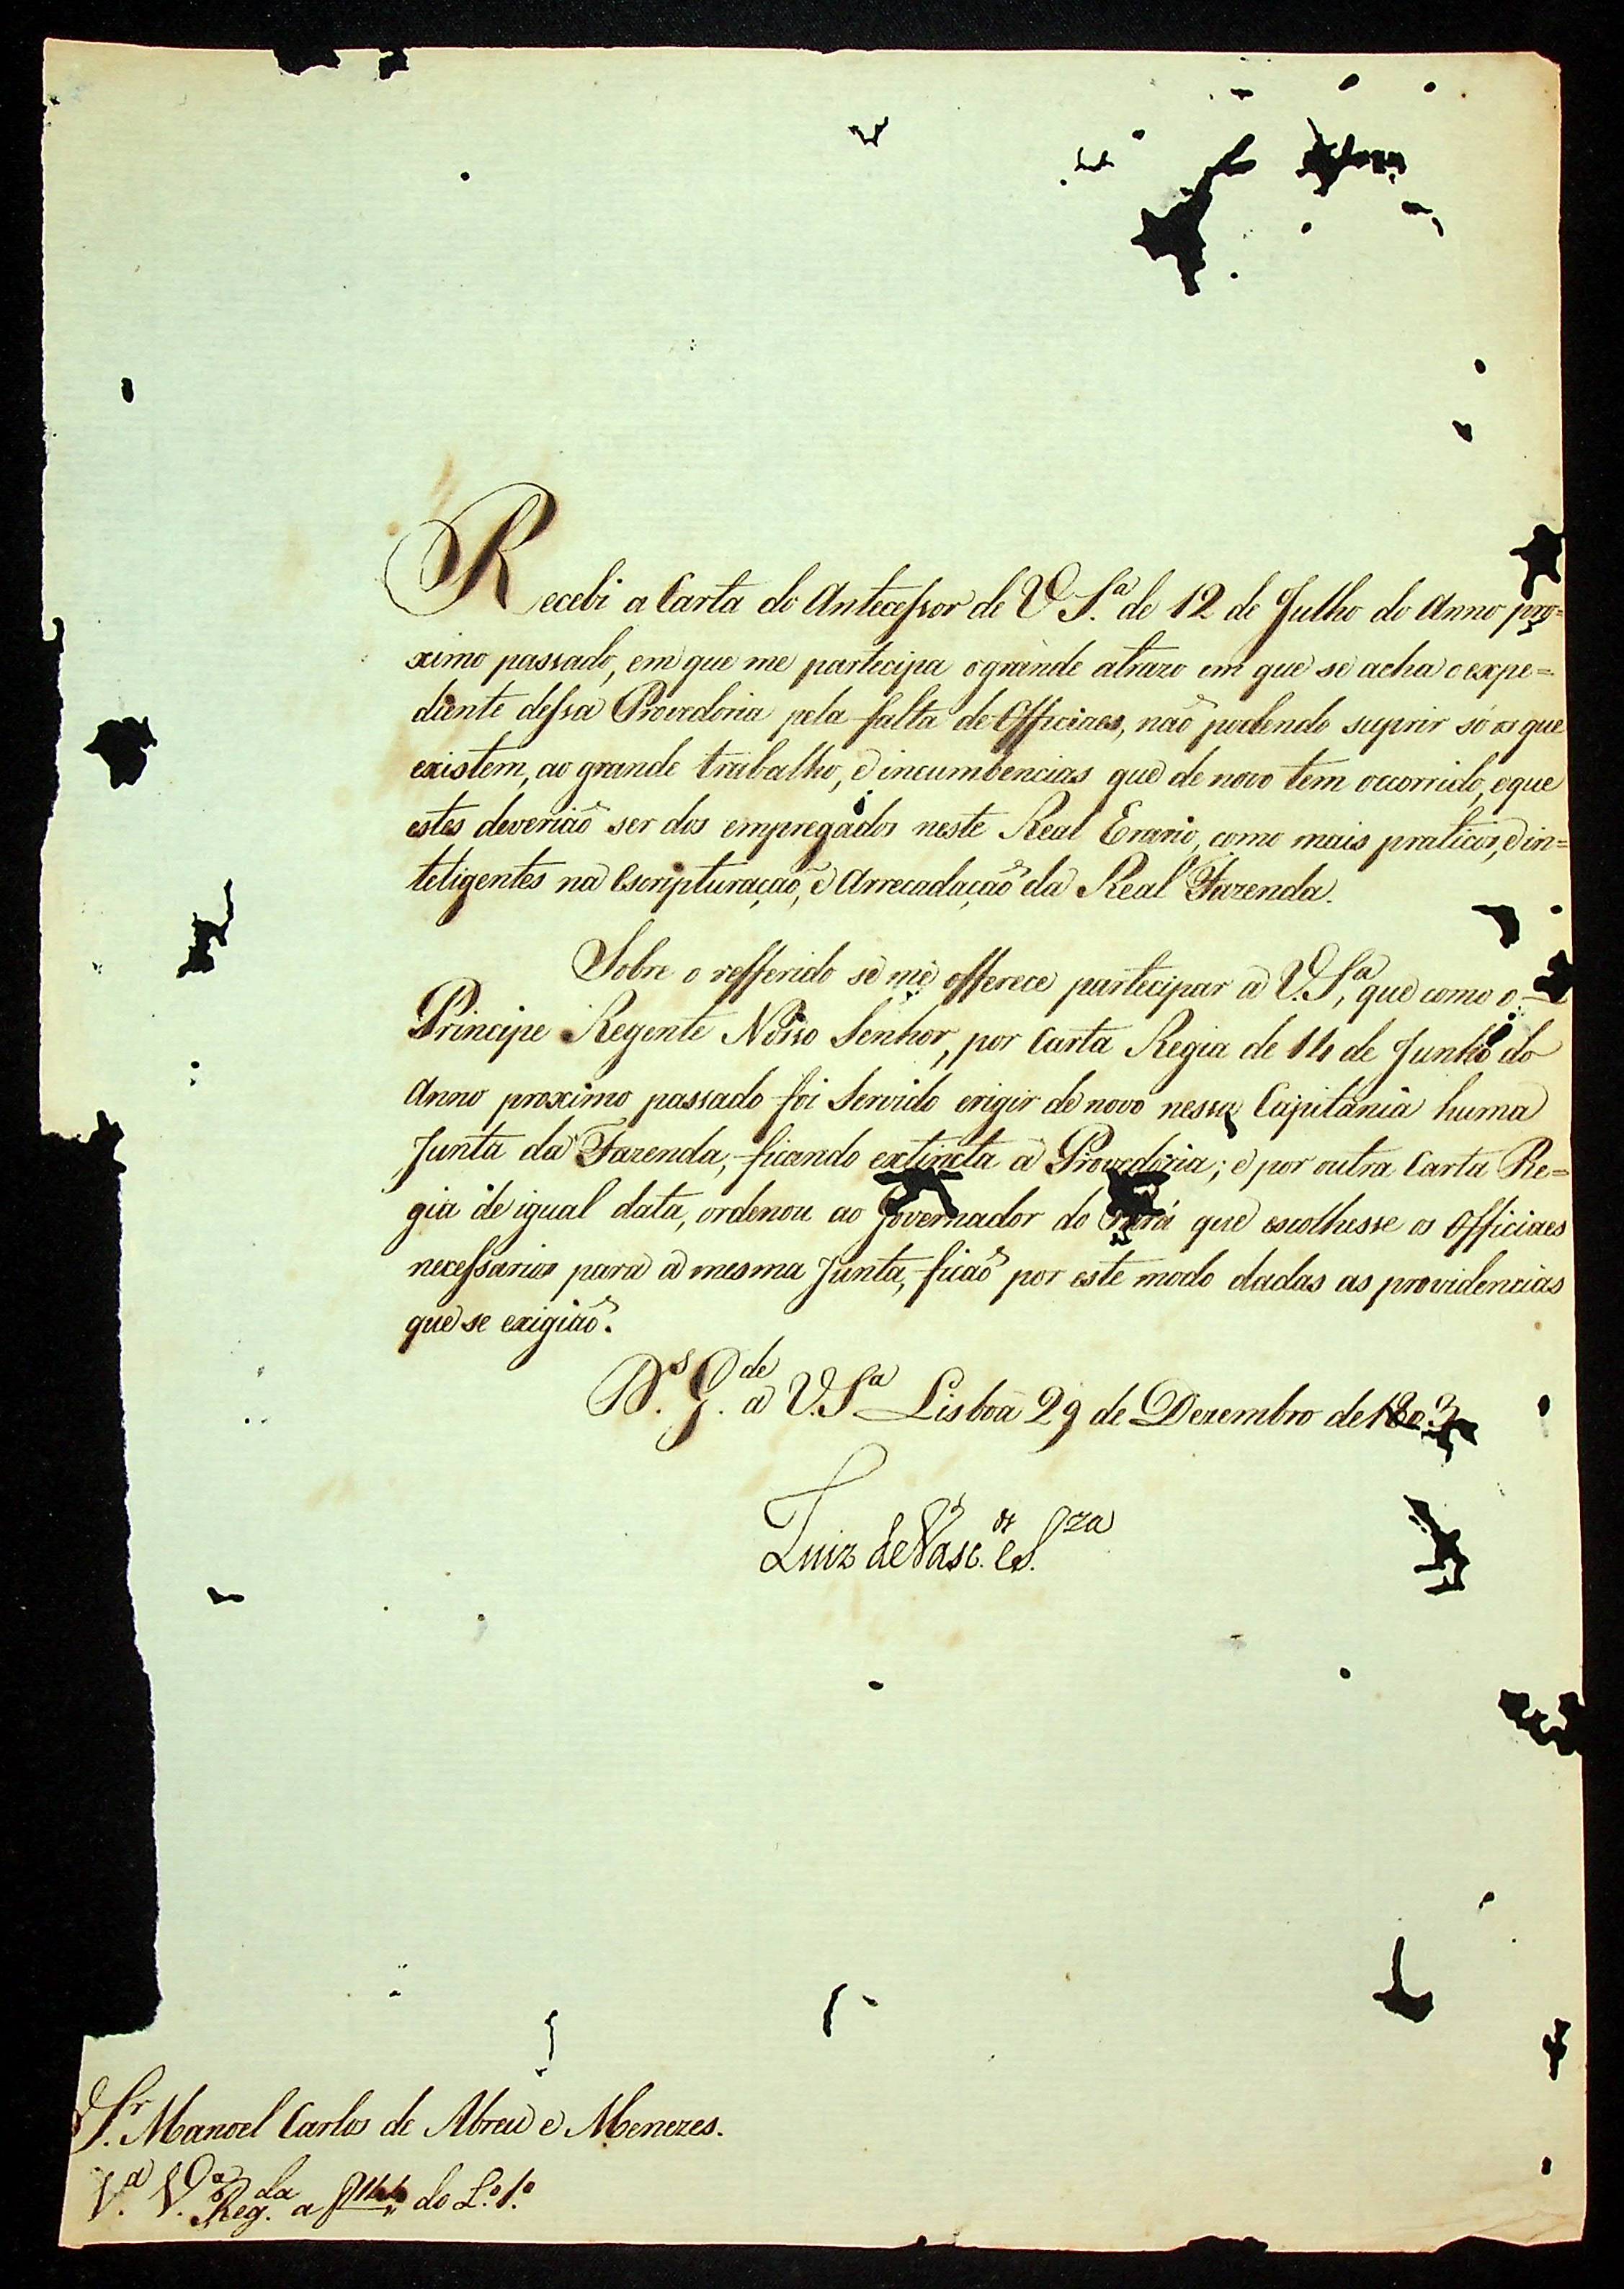 Recebi a Carta do Antecessor de V S.ª de 12 de Julho do Anno pro=
ximo passado, em que me partecipa o grande atrazo em que se acha o expe=
diente dessa Provedoria pela falta de Officiaes, não podendo suprir só os que
existem, ao grande trabalho, e incumbencias que de novo tem occorrido, e que
estes deverião ser dos empregados neste Real Erario, como mais praticos, e in=
teligentes na Escripturação, e Arrecadação da Real Fazenda.
Sobre o refferido se me offerece partecipar a V. S.ª, que como o
Principe Regente Nosso Senhor, por Carta Regia de 14 de Junho do
Anno proximo passado foi Servido erigir de novo nessa Capitania huma
Junta da Fazenda, ficando extincta a Provedoria; e por outra Carta Re=
gia de igual data, ordenou ao Governador do Pará que escolhesse os Officiaes
necessarios para a mesma Junta, ficão por este modo dadas as providencias
que se exigião.
D.s G.de a V. S.ª Lisboa 29 de Dezembro de 1803
Luiz de Vasc.os e S.za
S.r Manoel Carlos de Abreu e Menezes.
V.a V.a Reg.da a do L.o 1.o